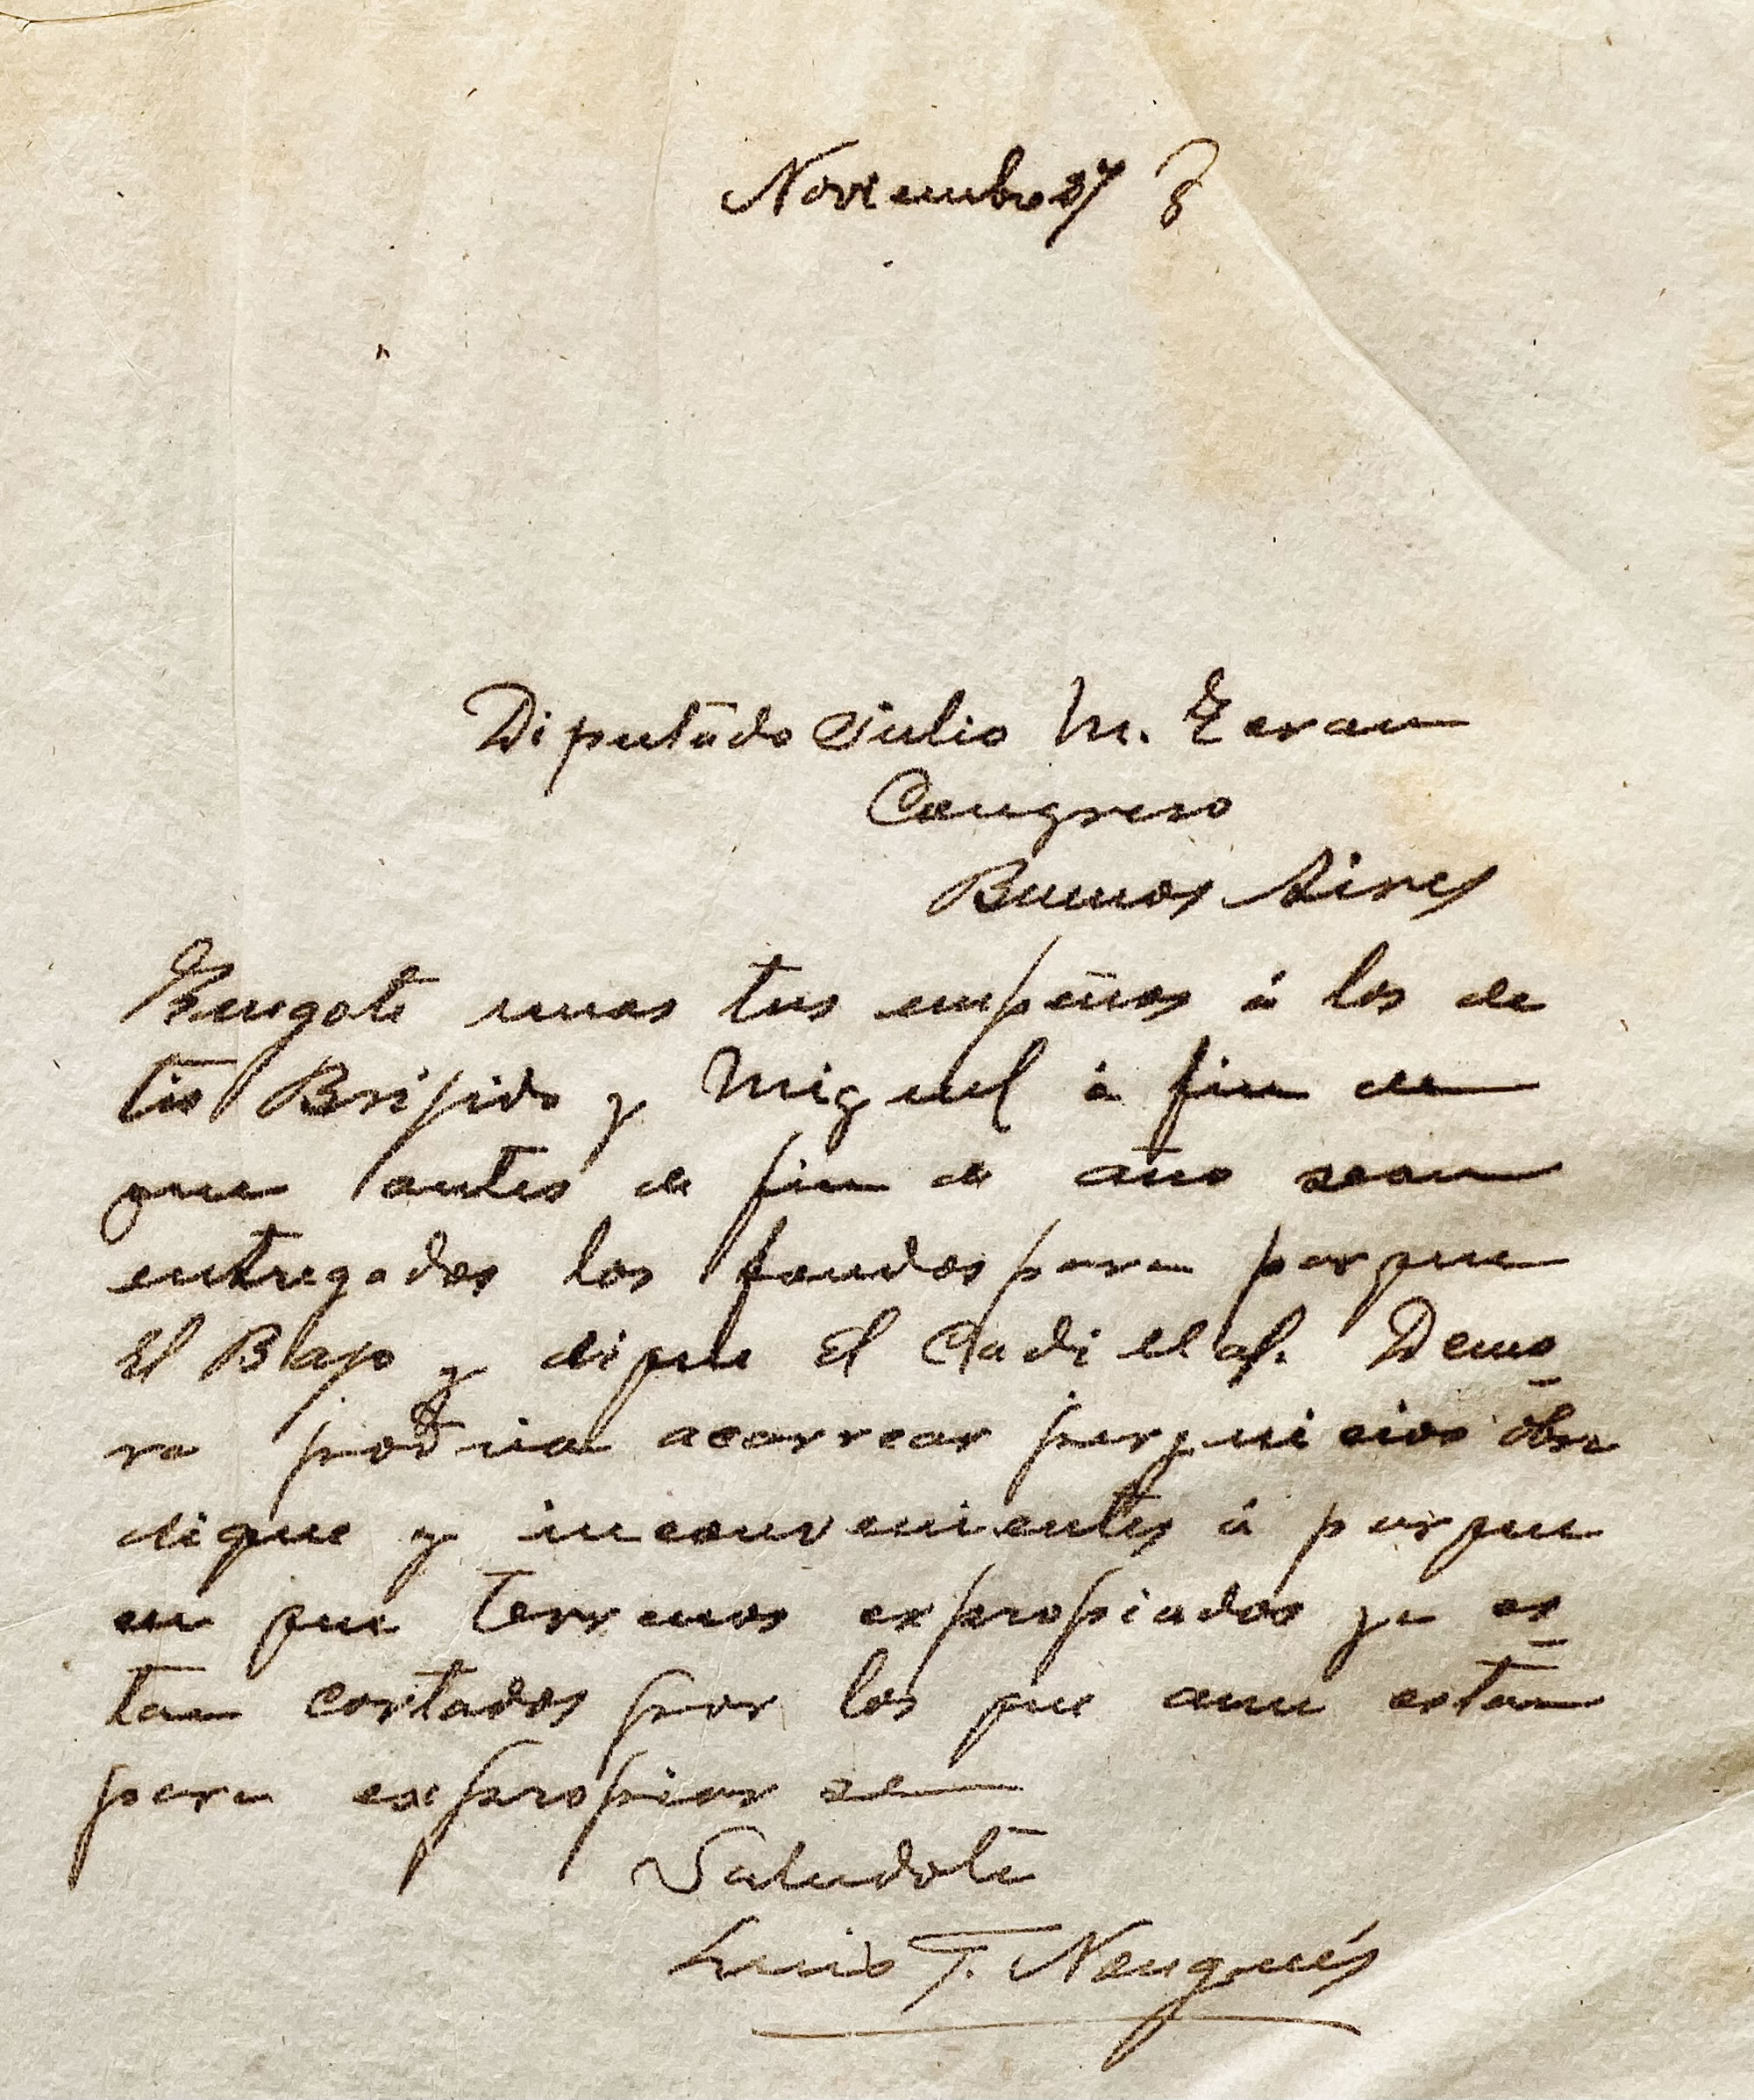 Noviembre 27
Diputado Julio M. Teran
Congreso
Buenos Aires
Ruegote unas tus empeños á los de
tio Brígido y Miguel á fin de
que antes de fin de año sean
entregados los fondos para parque
El Bajo y dique El Cadillal. Demo
ra podria acarrear perjuicios obra
dique y inconvenientes á parque
en que terrenos expropiados ya es
tan cortados por los que aun estan
para expropiarse
Saludote
Luis F. Nougués